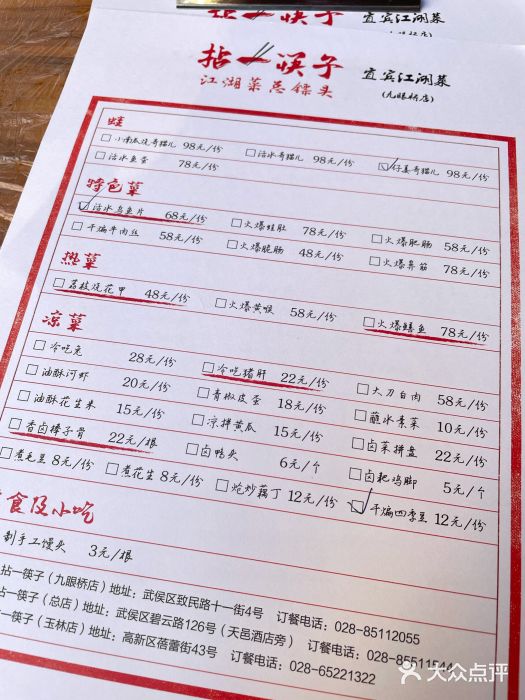 拈一筷子 宜宾江湖菜
(九眼桥店)
拈一筷子 宜宾江湖菜
江湖菜总镖头 (九眼桥店)
蛙
小南瓜烧哥猫儿 98元/份 活水哥猫儿 98元/份 仔姜哥猫儿 98元/份
活水鱼蛋 78元/份
特色菜
活水乌鱼片 68元/份 火爆蛙肚 78元/份 火爆肥肠 58元/份
干煸牛肉丝 58元/份 火爆脆肠 48元/份 火爆鼻筋 78元/份
热菜
荔枝烧花甲 48元/份 火爆黄喉 58元/份 火爆鳝鱼 78元/份
凉菜
冷吃兔 28元/份 冷吃猪肝 22元/份 大刀白肉 58元/份
油酥河虾 20元/份 青椒皮蛋 18元/份 蘸水素菜 10元/份
油酥花生米 15元/份 凉拌黄瓜 15元/份 卤菜拼盘 22元/份
香卤棒子骨 22元/根 卤鸭头 6元/个 卤耙鸡脚 5元/个
煮毛豆 8元/份 煮花生 8元/份 炝炒藕丁 12元/份 干煸四季豆 12元/份
食及小吃
制手工馒头 3元/根
拈一筷子（九眼桥店）地址：武侯区致民路十一街4号 订餐电话：028-85112055
占一筷子（总店）地址：武侯区碧云路126号（天邑酒店旁） 订餐电话：028-85511544
一筷子（玉林店）地址：高新区蓓蕾街43号 订餐电话：028-65221322
大众点评